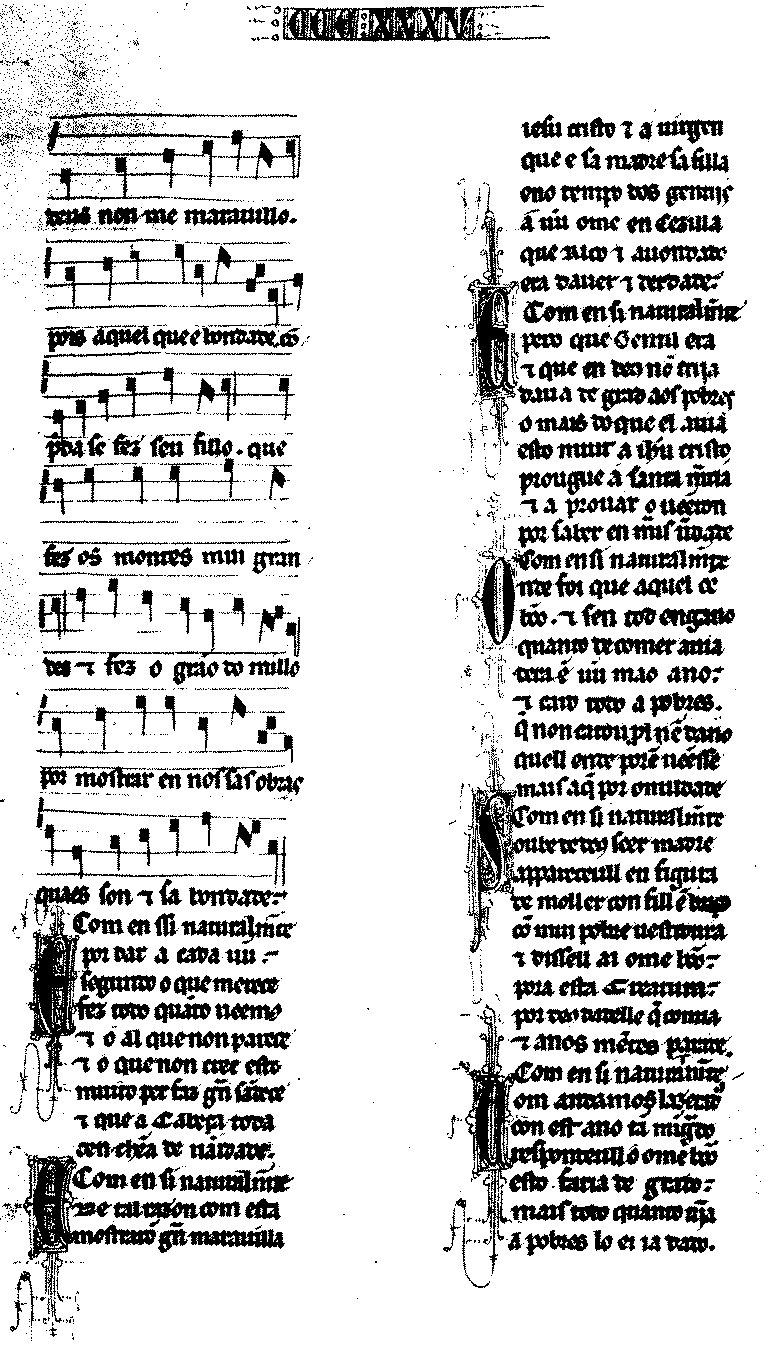 CCC XXXV
deus non me marauillo.
pois aquel que e bondade. cō
p̄da se fez seu fillo. que
fez os montes mui gran
des ⁊ fez o grāo do millo
por mostrar en nos sas obras
quaes son ⁊ sa bondade.
Com en ssi naturalm̄te
por dar a cada un
segundo o que merece
fez todo quāto ueemo
⁊ o al que non parece
⁊ o que non cree esto
muito per faz gn̄ sādece
⁊ que a Cabeça toda
con chēa de uāidade.
Com en si naturalm̄te
tal razon com esta
mostrarō gn̄ marauilla
iesu cristo ⁊ a uirgen
que e sa madre sa filla
eno tempo dos gentiis
a un ome en Cezilla
que Rico ⁊ auondado
era dauer ⁊ uerdade.
Com en si naturalm̄te
Ero que Gentil era
⁊ que en deo nō criia
daua de grad aos pobres
o mais do que el auia
esto muit a ih̄u cristo
prougue a santa m̄ria
⁊ a prouar o ueeron
por saber en mais ūdade
Com en si naturalm̄te
Onde foi que aquel
bōo. ⁊ sen tod engano
quanto de comer auia
deraē un mao ano.
⁊ eno todo a pobres.
q̄ non catou prol nē dano
quell ende porē ueesse
mais aq̄ por omildade
Com en si naturalm̄te
seer madre
appareceull en figura
de moller con fill ē braço
cō mui pobre uestidura
⁊ disseu ai ome bōo
pora esta Creatura
por deo dadelle q̄ comia
⁊ anos
Com en si naturalm̄te
com andamos lazerados
con est ano tā
respondeull o ome bōo
esto faria de grado
mais todo quanto
a pobres lo ei ia dado.